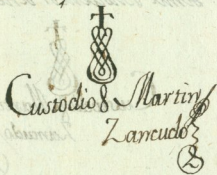 Custodio Martin
Zancudo